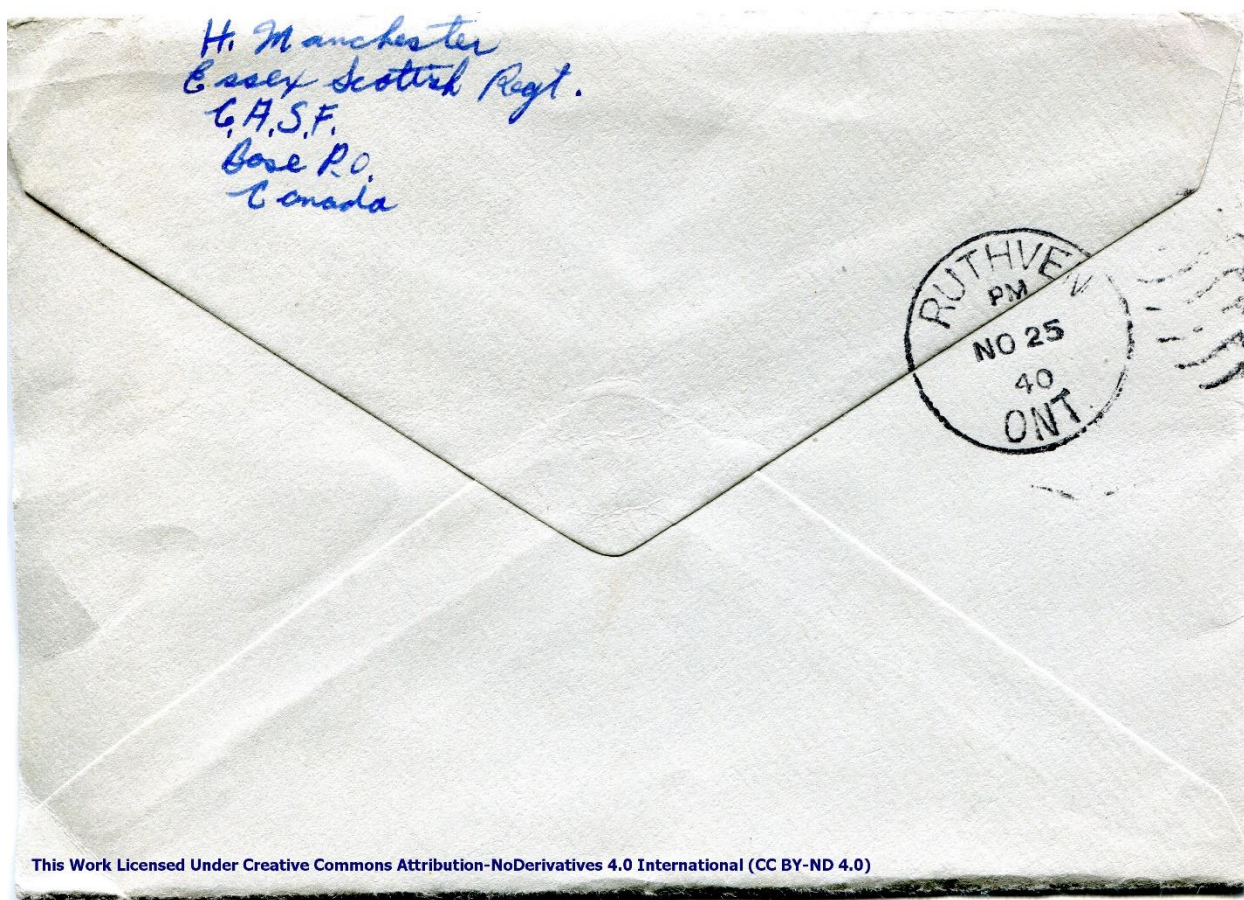 H. Manchester
Essex Scottish Regt.
C.A.S.F.
Base P.O.
Canada
RUTHVEN
PM
NO 25
40
ONT.
This Work Licensed Under Creative Commons Attribution-NoDerivatives 4.0 International (CC BY-ND 4.0)